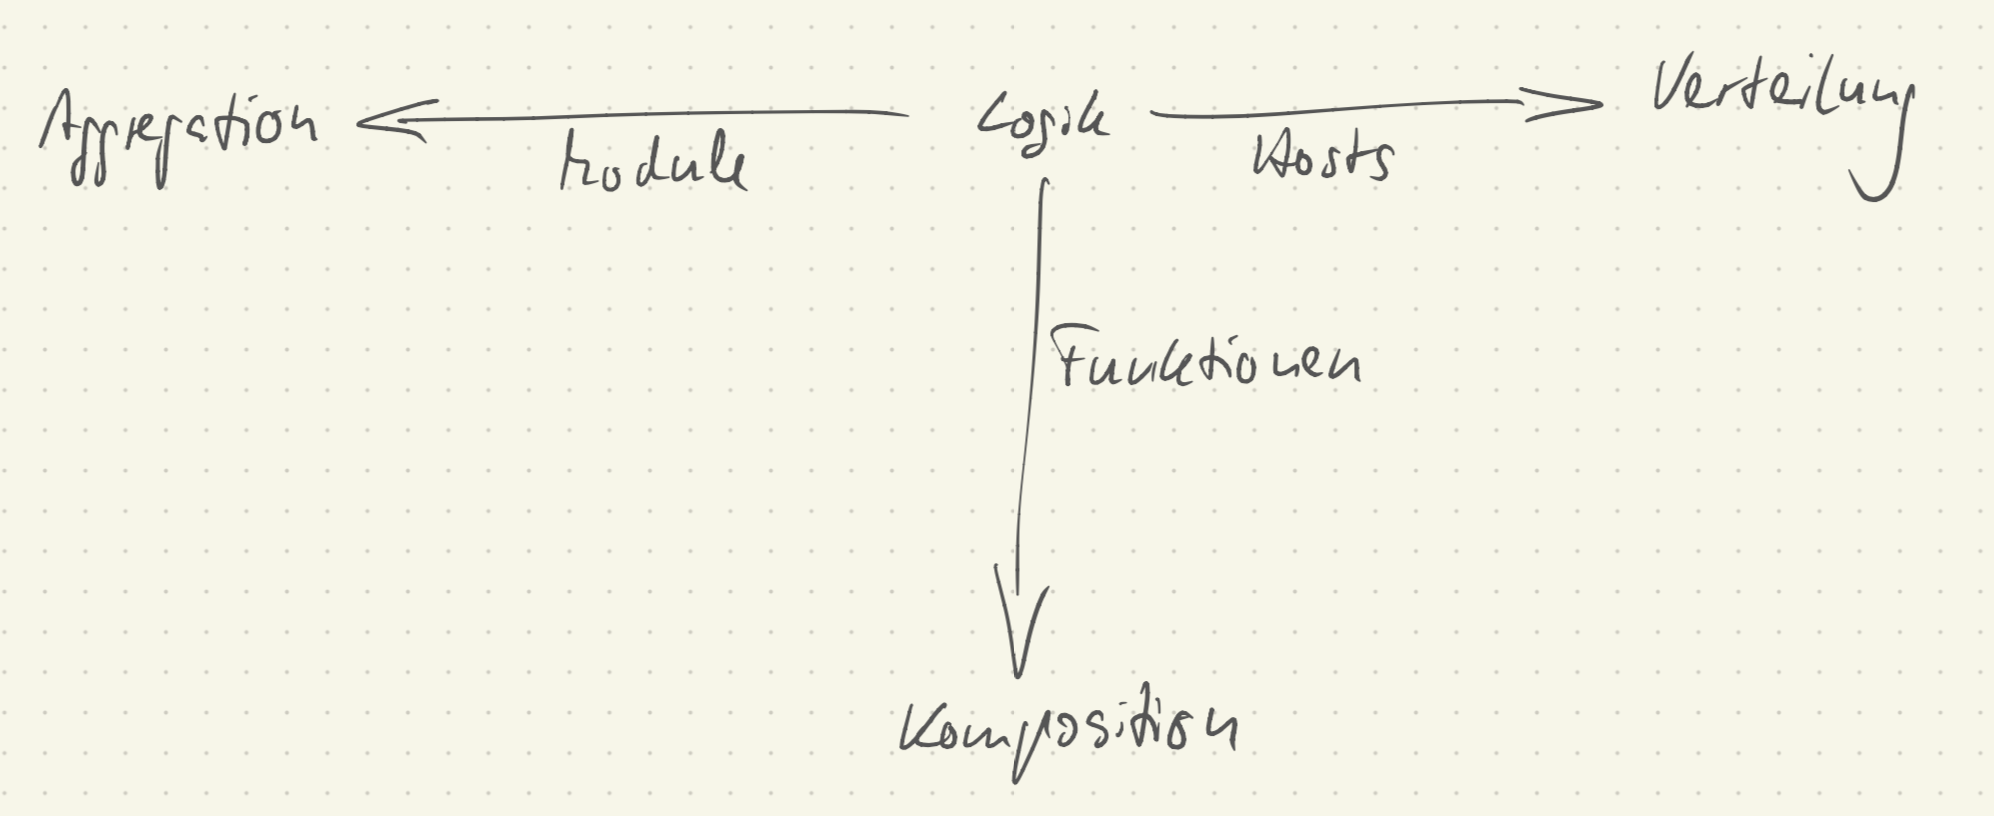 Aggregation
Module
Logik
Hosts
Verteilung
Funktionen
Komposition